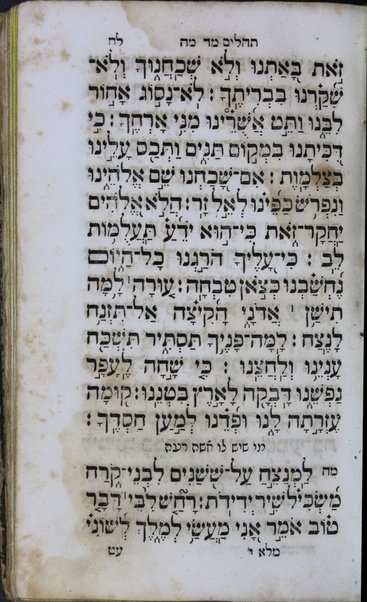 תהלים מד מה לח
זֹאת בָּאַתְנוּ וְלֹא שְׁכַחֲנוּךָ וְלֹא־
שִׁקַּרְנוּ בִּבְרִיתֶךָ׃ לֹא־נָסוֹג אָחוֹר
לִבֵּנוּ וַתֵּט אֲשֻׁרֵינוּ מִנִּי אָרְחֶךָ׃ כִּי
דִכִּיתָנוּ בִּמְקוֹם תַּנִּים וַתְּכַס עָלֵינוּ
בְצַלְמָוֶת׃ אִם־שָׁכַחְנוּ שֵׁם אֱלֹהֵינוּ
וַנִּפְרֹשׂ כַּפֵּינוּ לְאֵל זָר׃ הֲלֹא אֱלֹהִים
יַחֲקָר־זֹאת כִּי־הוּא יֹדֵעַ תַּעֲלֻמוֹת
לֵב׃ כִּי־עָלֶיךָ הֹרַגְנוּ כָל־הַיּוֹם
נֶחְשַׁבְנוּ כְּצֹאן טִבְחָה׃ עוּרָה ׀ לָמָּה
תִישַׁן ׀ אֲדֹנָי הָקִיצָה אַל־תִּזְנַח
לָנֶצַח׃ לָמָּה־פָנֶיךָ תַסְתִּיר תִּשְׁכַּח
עָנְיֵנוּ וְלַחֲצֵנוּ׃ כִּי שָׁחָה לֶעָפָר
נַפְשֵׁנוּ דָּבְקָה לָאָרֶץ בִּטְנֵנוּ׃ קוּמָה
עֶזְרָתָה לָּנוּ וּפְדֵנוּ לְמַעַן חַסְדֶּךָ׃
מי שיש לו אשה רעה
מה לַמְנַצֵּחַ עַל־שֹׁשַׁנִּים לִבְנֵי־קֹרַח
מַשְׂכִּיל שִׁיר יְדִידֹת׃ רָחַשׁ לִבִּי דָּבָר
טוֹב אֹמֵר אָנִי מַעֲשַׂי לְמֶלֶךְ לְשׁוֹנִי
מלא י׳ עט